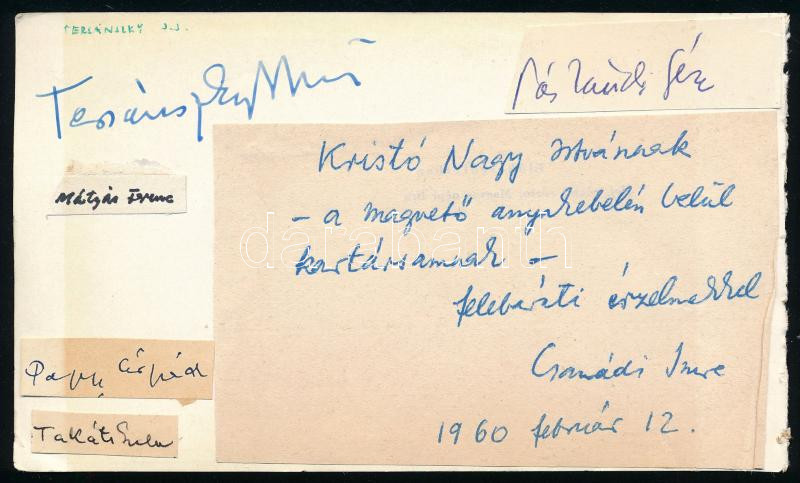 TERSÁNSZKY J. J.
Tersánszky
Páskándi Géza
Kristó Nagy Istvánnak
– a magvető anyakebelén belül
kartársamnak –
felebaráti érzelmekkel
Csanádi Imre
1960 február 12.
Mátyás Ferenc
Papp Árpád
Takáts Gyula
darabanth